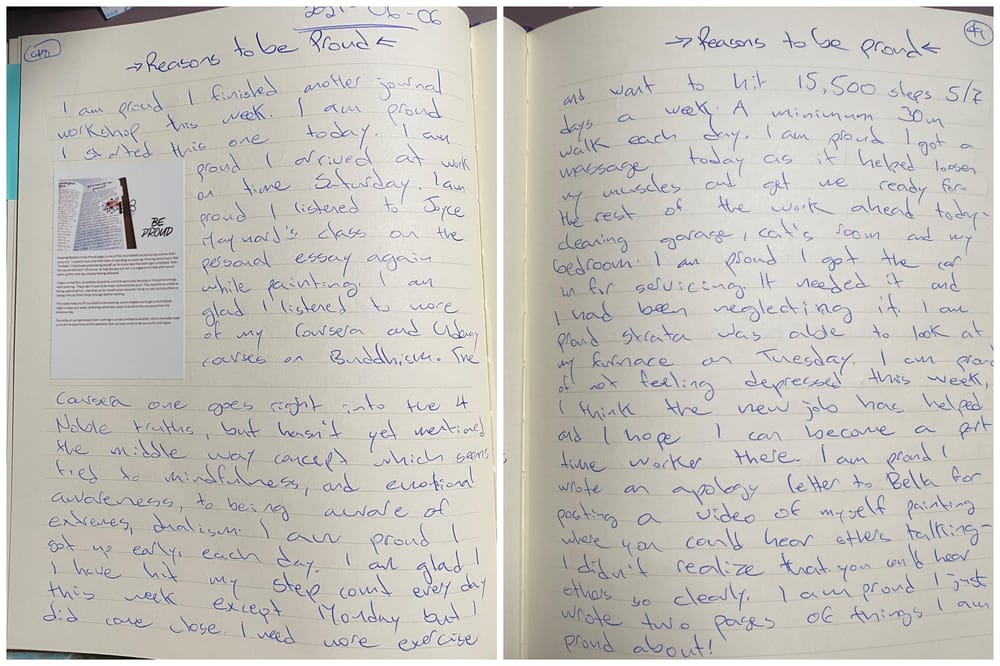 2021-06-06
→Reasons to be Proud←
I am proud I finished another journal
workshop this week. I am proud
I started this one today. I am
proud I arrived at work
on time Saturday. I am
proud I listened to Joyce
Maynard's class on the
personal essay again
while painting. I am
glad I listened to more
of my Coursera and Udemy
courses on Buddhism. The
BE
PROUD
Coursera one goes right into the 4
Noble truths, but hasn't yet mentioned
the middle way concept which seems
tied to mindfulness, and emotional
awareness, to being aware of
extremes, dualism. I am proud I
got up early, each day. I am glad I
I have hit my step count every day
this week except Monday but I
did come close. I need more exercise
→Reasons to be proud←
and want to hit 15,500 steps 5/7
days a week. A minimum 30m
walk each day. I am proud I got a
massage today as it helped loosen
my muscles and get me ready for
the rest of the work ahead today-
cleaning garage, cat's room and my
bedroom. I am proud I got the car
in for servicing. It needed it and
I had been neglecting it. I am
proud strata was able to look at
my furnace on Tuesday. I am proud
of not feeling depressed this week,
I think the new job has helped
and I hope I can become a part
time worker there. I am proud I
wrote an apology letter to Bella for
posting a video of myself painting
where you could hear others talking-
I didn't realize that you could hear
others so clearly. I am proud I just
wrote two pages of things I am
proud about!